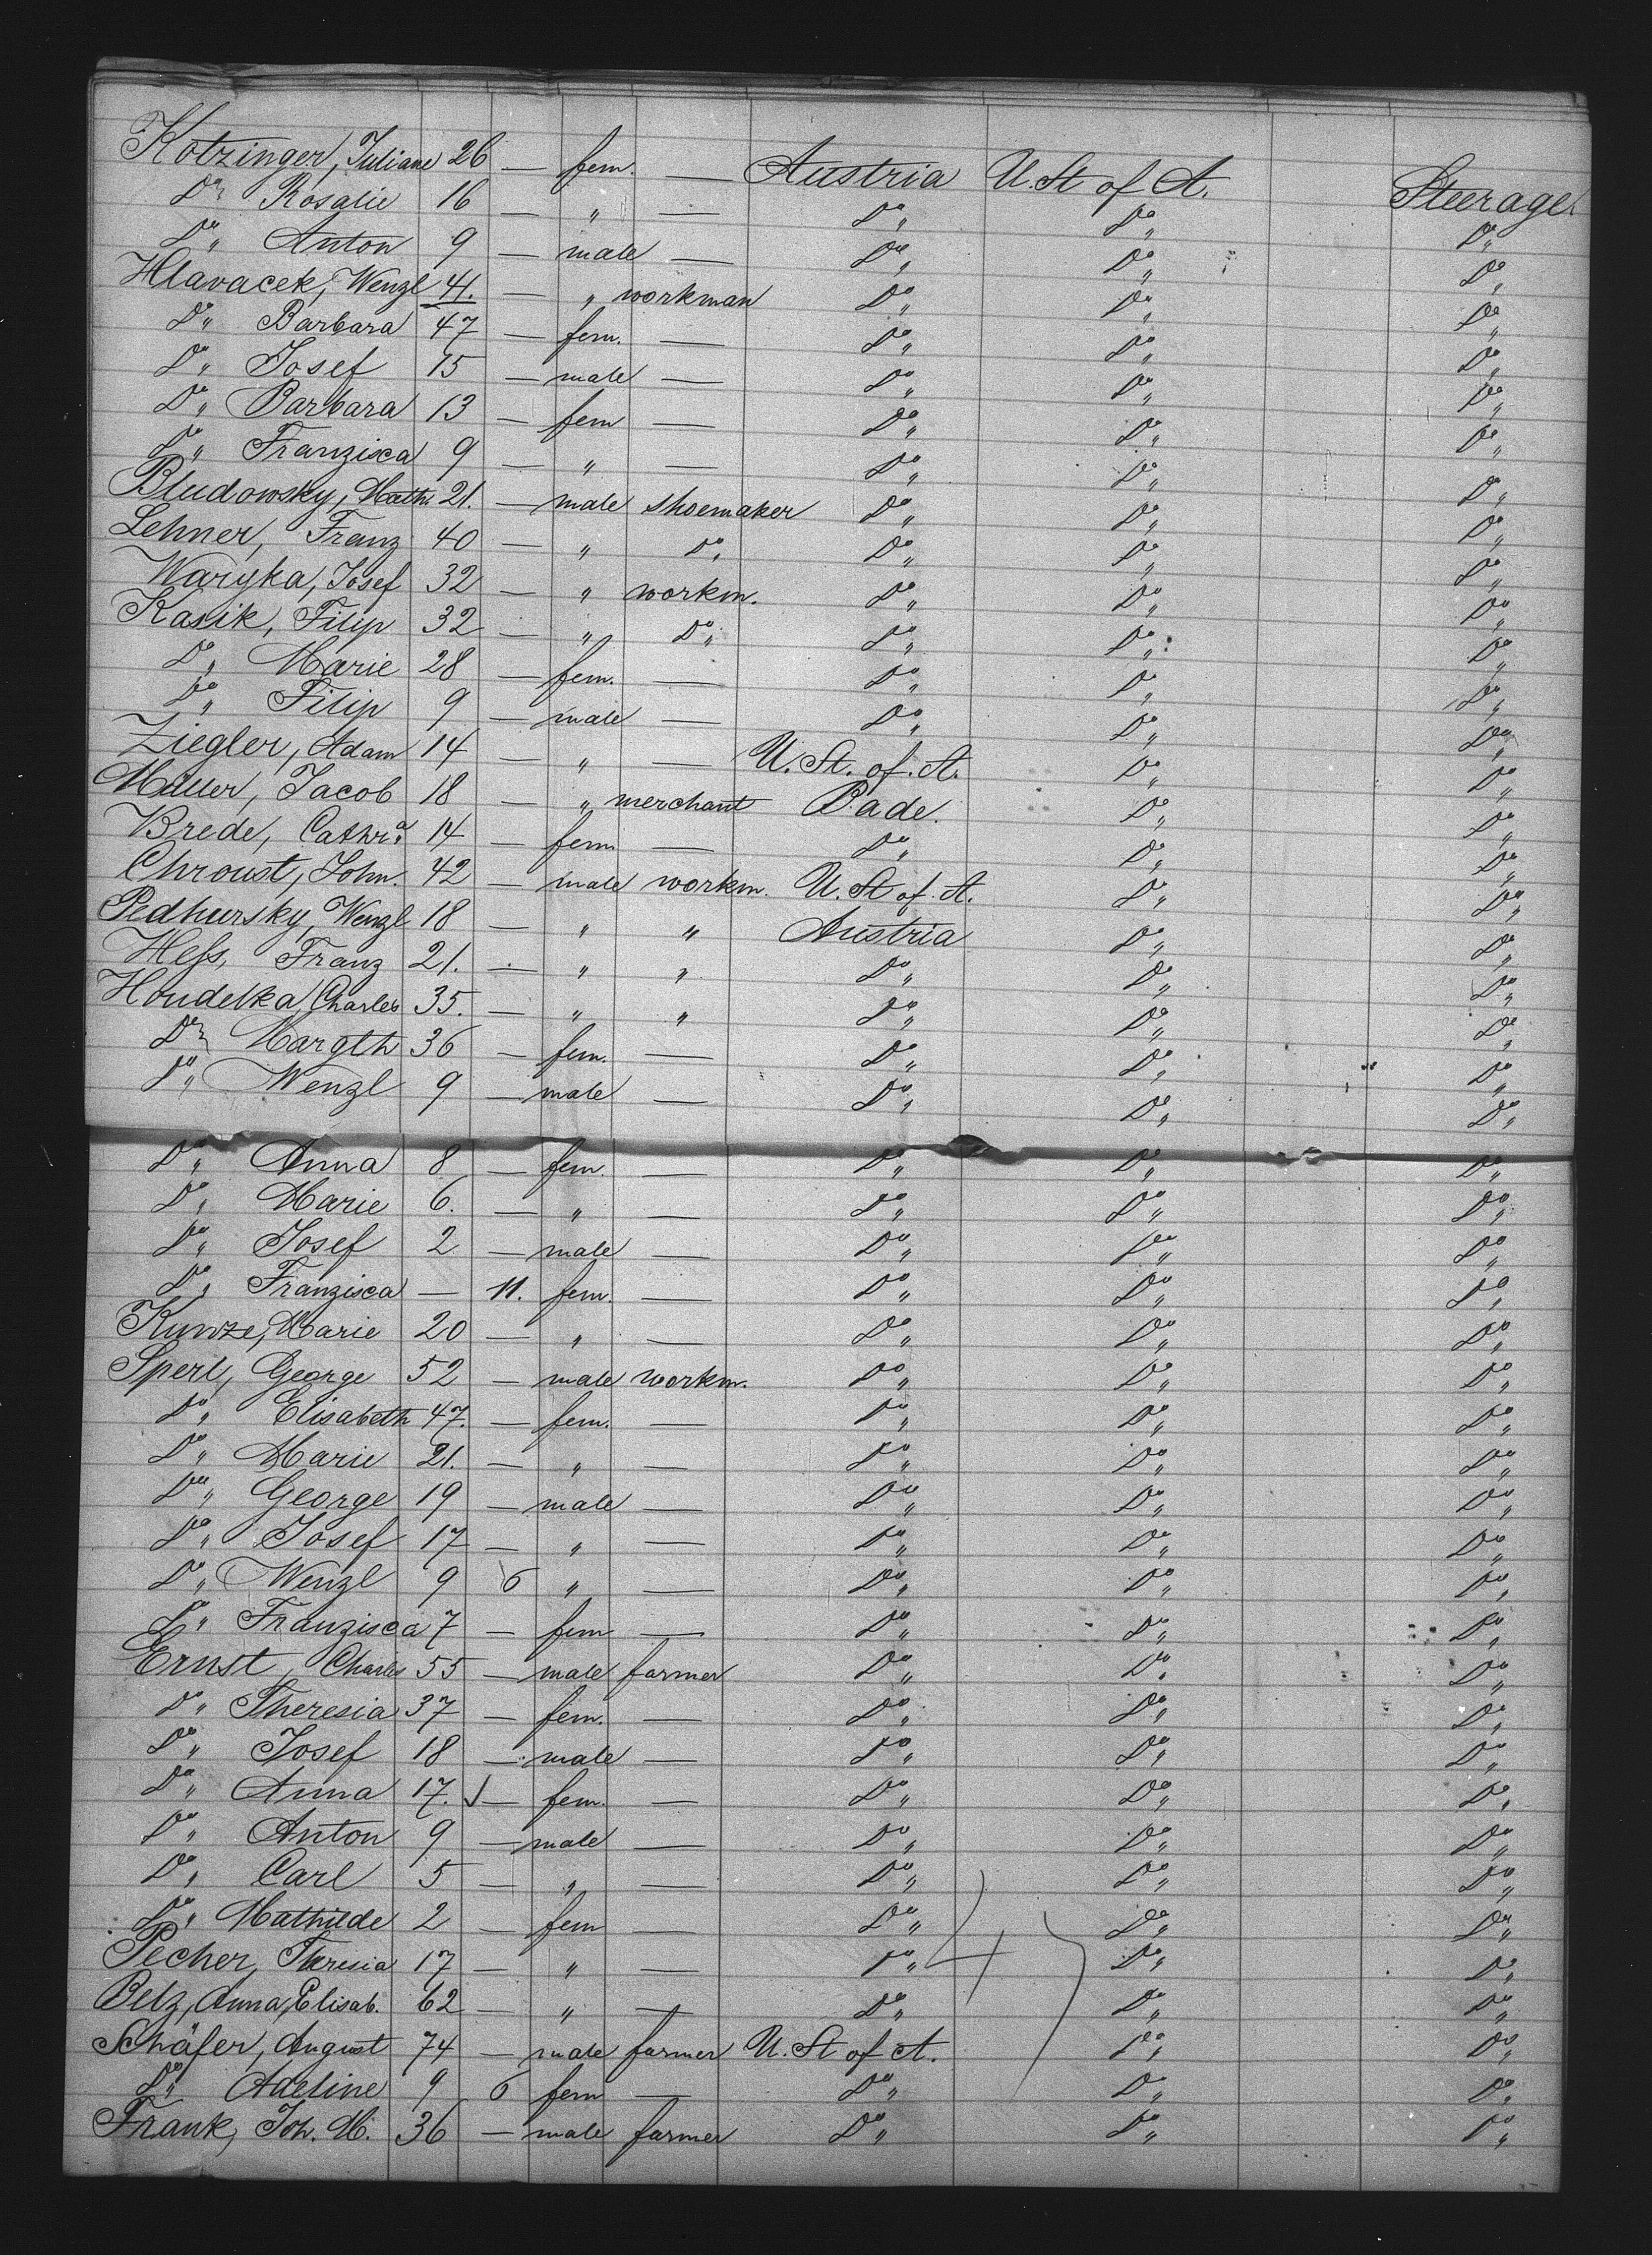 Kotzinger, Juliane 26 — fem. — Austria U. St of A. Steerage
Do Rosalie 16 — " — Do Do Do
Do Anton 9 — male — Do Do Do
Hlavacek, Wenzl 41. — " workman Do Do Do
Do Barbara 47 — fem. — Do Do Do
Do Josef 15 — male — Do Do Do
Do Barbara 13 — fem — Do Do Do
Do Franzisca 9 — " — Do Do Do
Bludowsky, Math. 21. — male shoemaker Do Do Do
Lehner, Franz 40 — " Do Do Do Do
Waryka, Josef 32 — " workm. Do Do Do
Kasik, Filip 32 — " Do Do Do Do
Do Marie 28 — fem. — Do Do Do
Do Filip 9 — male — Do Do Do
Ziegler, Adam 14 — " — U. St. of. A. Do Do
Müller, Jacob 18 — " merchant Bade. Do Do
Brede, Cathra 14 — fem — Do Do Do
Chroust, John. 42 — male workm. U. St of. A. Do Do
Pedhursky, Wenzl 18 — " " Austria Do Do
Hess, Franz 21. — " " Do Do Do
Houdelka, Charles 35. — " " Do Do Do
Do Margth 36 — fem. — Do Do Do
Do Wenzl 9 — male — Do Do Do
Do Anna 8 — fem. — Do Do Do
Do Marie 6. — " — Do Do Do
Do Josef 2 — male — Do Do Do
Do Franzisca — 11. fem. — Do Do Do
Kunze, Marie 20 — " — Do Do Do
Sperl, George 52 — male workm. Do Do Do
Do Elisabeth 47. — fem. — Do Do Do
Do Marie 21. — " — Do Do Do
Do George 19 — male — Do Do Do
Do Josef 17 — " — Do Do Do
Do Wenzl 9 6 " — Do Do Do
Do Franzisca 7 — fem — Do Do Do
Ernst, Charles 55 — male farmer Do Do Do
Do Theresia 37 — fem. — Do Do Do
Do Josef 18 — male — Do Do Do
Do Anna 17. — fem. — Do Do Do
Do Anton 9 — male — Do Do Do
Do Carl 5 — " — Do Do Do
Do Mathilde 2 — fem — Do Do Do
Pecher, Theresia 17 — " — Do Do Do
Belz, Anna, Elisab. 62 — " — Do Do Do
Schäfer, August 74 — male farmer U. St of A. Do Do
Do Adeline 9 6 fem — Do Do Do
Frank, Joh. M. 36 — male farmer Do Do Do